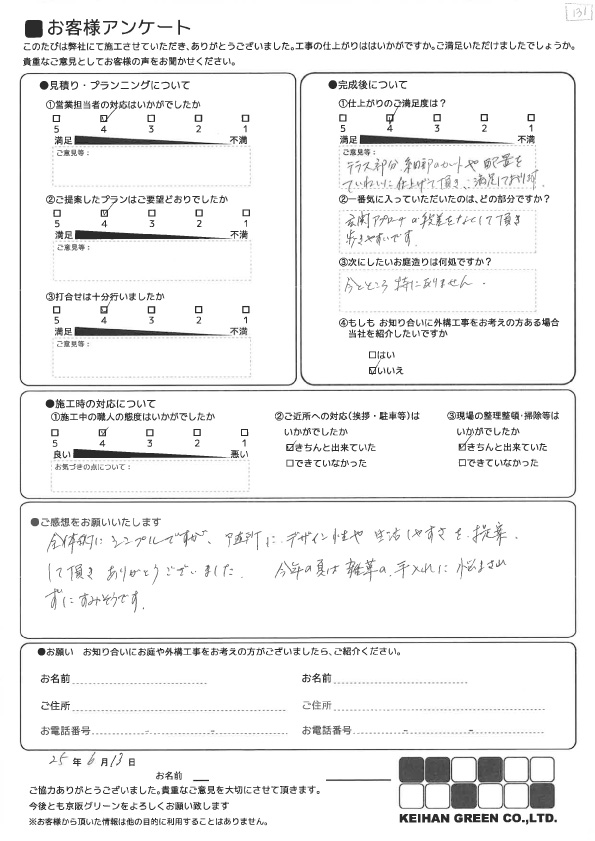 131
お客様アンケート
このたびは弊社にて施工させていただき、ありがとうございました。工事の仕上がりははいかがですか。ご満足いただけましたでしょうか。
貴重なご意見としてお客様の声をお聞かせください。
●見積り・プランニングについて
①営業担当者の対応はいかがでしたか
5 4 3 2 1
満足 不満
ご意見等：
②ご提案したプランはご要望どおりでしたか
5 4 3 2 1
満足 不満
ご意見等：
③打合せは十分行いましたか
5 4 3 2 1
満足 不満
ご意見等：
●完成後について
①仕上がりのご満足度は？
5 4 3 2 1
満足 不満
ご意見等：
テラス部分、細部のカットや配置を
ていねいに仕上げて頂き、満足しております。
②一番気に入っていただいたのは、どの部分ですか？
玄関アプローチの段差をなくして頂き
歩きやすいです。
③次にしたいお庭造りは何処ですか？
今ところ特にありません。
④もしも お知り合いに外構工事をお考えの方ある場合
当社を紹介したいですか
□はい
☑いいえ
●施工時の対応について
①施工中の職人の態度はいかがでしたか
5 4 3 2 1
良い 悪い
お気づきの点について：
②ご近所への対応(挨拶・駐車等)は
いかがでしたか
☑きちんと出来ていた
□できていなかった
③現場の整理整頓・掃除等は
いかがでしたか
☑きちんと出来ていた
□できていなかった
●ご感想をお願いいたします
全体的にシンプルですが、随所に、デザイン性や生活しやすさを、提案、
して頂きありがとうございました。 今年の夏は雑草の、手入れに悩まされ
ずにすみそうです。
●お願い お知り合いにお庭や外構工事をお考えの方がございましたら、ご紹介ください。
お名前 お名前
ご住所 ご住所
お電話番号 - - お電話番号 - -
25 年 6 月 13 日
お名前
ご協力ありがとうございました。貴重なご意見を大切にさせて頂きます。
今後とも京阪グリーンをよろしくお願い致します
※お客様から頂いた情報は他の目的に利用することはありません。
KEIHAN GREEN CO.,LTD.